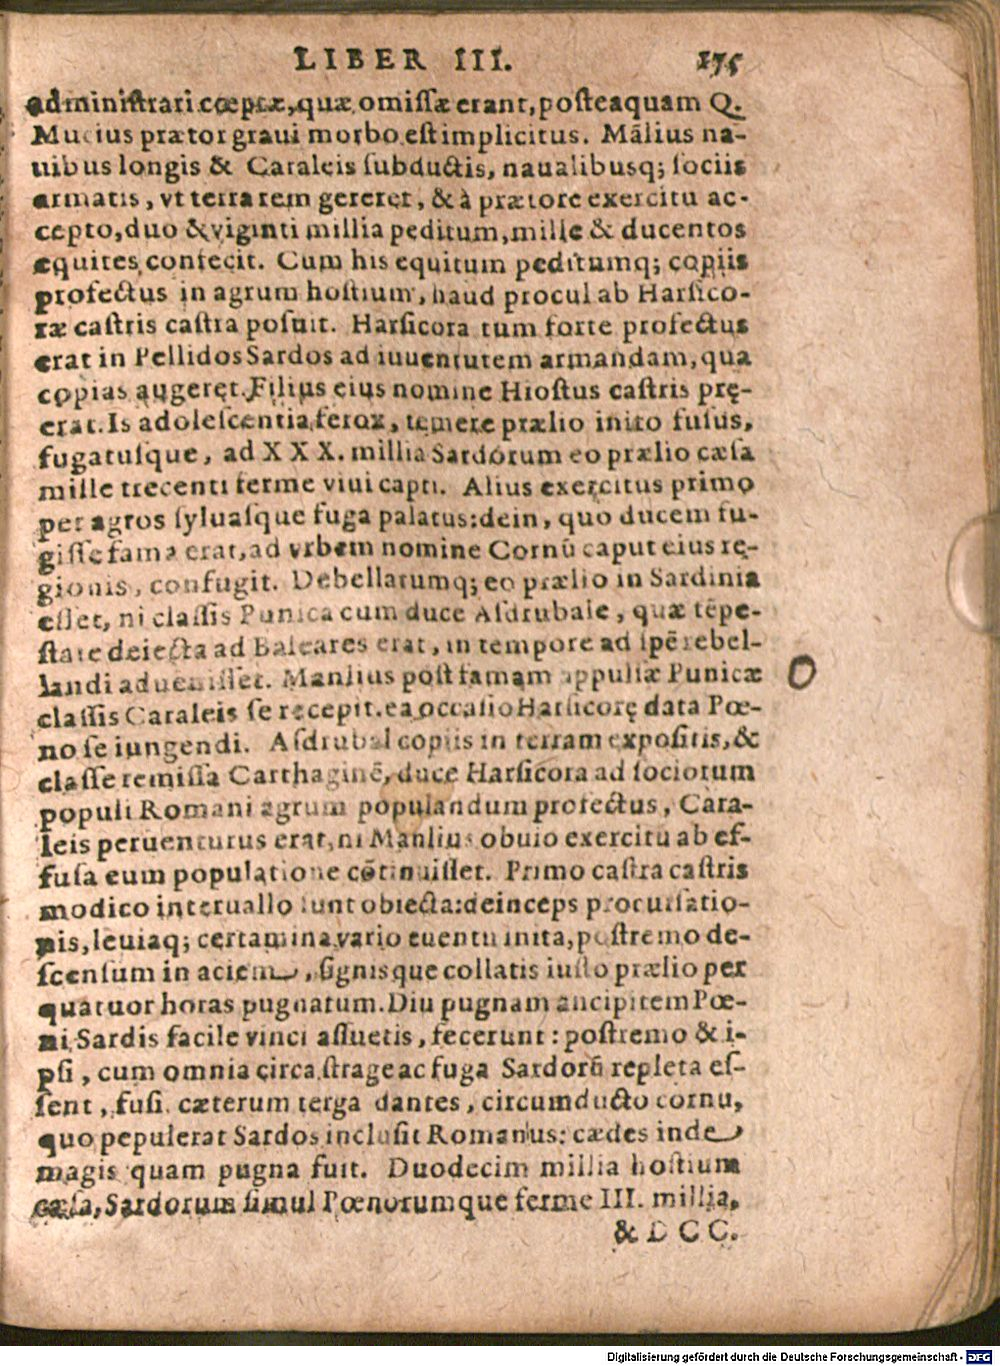 LIBER III. 175
administrari cœptæ, quæ omissæ erant, posteaquam Q.
Mucius prætor graui morbo est implicitus. Mālius na-
uibus longis & Caraleis subductis, naualibusq; sociis
armatis, vt terra rem gereret, & à prætore exercitu ac-
cepto, duo & viginti millia peditum, mille & ducentos
equites confecit. Cum his equitum peditumq; copiis
profectus in agrum hostium, haud procul ab Harsico-
ræ castris castra posuit. Harsicora tum forte profectus
erat in Pellidos Sardos ad iuuentutem armandam, qua
copias augeret. Filius eius nomine Hiostus castris prę-
erat. Is adolescentia ferox, temere prælio inito fusus,
fugatusque, ad XXX. millia Sardorum eo prælio cæsa
mille trecenti ferme viui capti. Alius exercitus primo
per agros syluasque fuga palatus: dein, quo ducem fu-
gisse fama erat, ad vrbem nomine Cornū caput eius rę-
gionis, confugit. Debellatumq; eo prælio in Sardinia
esset, ni classis Punica cum duce Asdrubale, quæ tēpe-
state deiecta ad Baleares erat, in tempore ad spē rebel-
landi aduenisset. Manlius post famam appulsæ Punicæ
classis Caraleis se recepit. ea occasio Harsicorę data Pœ-
no se iungendi. Asdrubal copiis in terram expositis, &
classe remissa Carthaginē, duce Harsicora ad sociorum
populi Romani agrum populandum profectus, Cara-
leis peruenturus erat, ni Manlius obuio exercitu ab ef-
fusa eum populatione cōtinuisset. Primo castra castris
modico interuallo sunt obiecta: deinceps procursatio-
nis, leuiaq; certamina vario euentu inita, postremo de-
scensum in aciem, signisque collatis iusto prælio per
quatuor horas pugnatum. Diu pugnam ancipitem Pœ-
ni Sardis facile vinci assuetis, fecerunt: postremo & i-
psi, cum omnia circa strage ac fuga Sardorū repleta es-
sent, fusi. cæterum terga dantes, circumducto cornu,
quo pepulerat Sardos inclusit Romanus: cædes inde
magis quam pugna fuit. Duodecim millia hostium
cæsa, Sardorum simul Pœnorumque ferme III. millia,
& DCC.
Digitalisierung gefördert durch die Deutsche Forschungsgemeinschaft - DFG